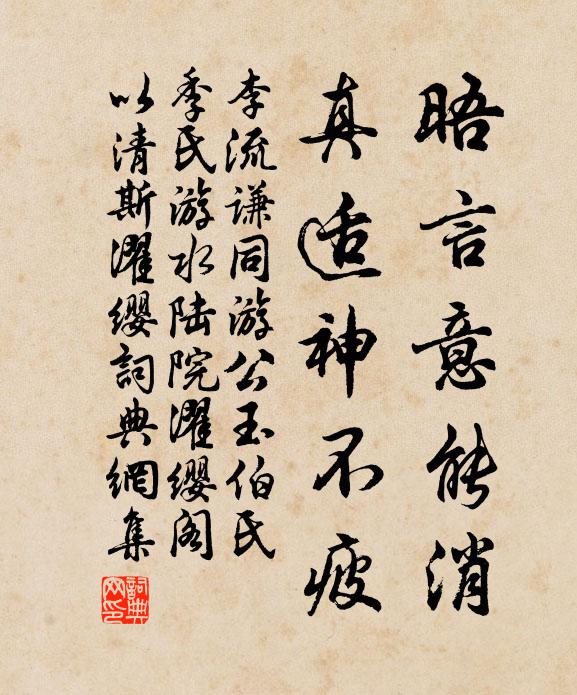 晤言意能消
真适神不疲
李流谦同游公玉伯氏
季氏游水陆院濯缨阁
以清斯濯缨詞典網集
詞典网印